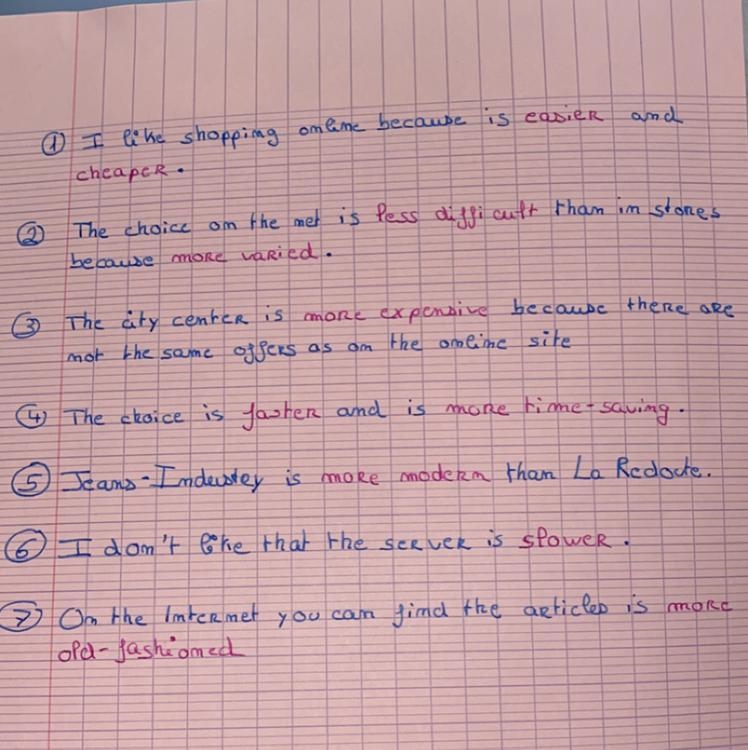 ① I like shopping online because is easier and
cheaper.
② The choice on the net is less difficult than in stores
because more varied.
③ The city center is more expensive because there are
not the same offers as on the online site
④ The choice is faster and is more time-saving.
⑤ Jeans-Industry is more modern than La Redoute.
⑥ I don't like that the server is slower.
⑦ On the Internet you can find the articles is more
old-fashioned